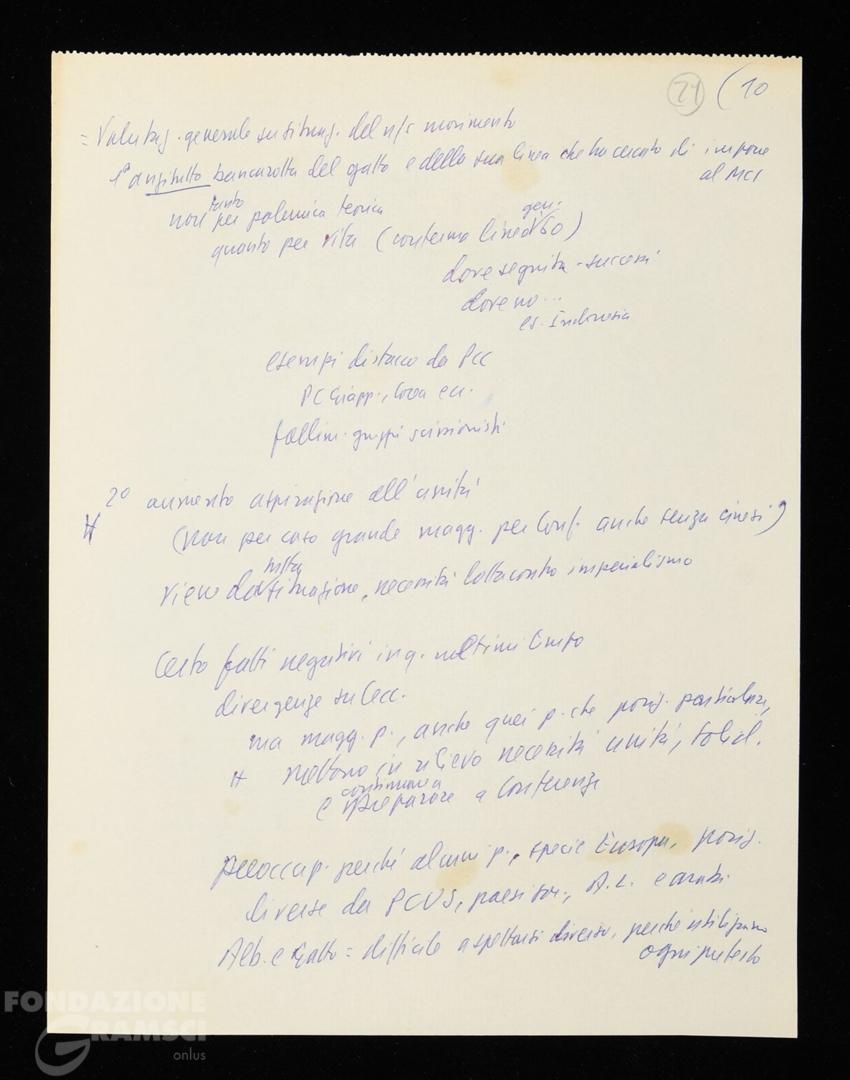 21 (10
= Valutaz. generale su situaz. del n/s movimento
1° anzitutto bancarotta del gatto e della sua linea che ha cercato di imporre
al MCI
non tanto per polemica teorica
quanto per vita (conferma linea gen. '60)
dove seguita - successi
dove no...
es. Indonesia
esempi distacco da PCC
PC Giapp., Corea ecc.
fallim. gruppi scissionisti
2° aumento aspirazione all'unità
(non per caso grande magg. per Conf. anche senza cinesi)
viene da situazione, necessità lotta contro imperialismo
Certo fatti negativi in q. ultimi tempo
divergenze su Cec.
ma magg. p., anche quei p. che posiz. particolari,
mettono in rilievo necessità unità, solid.
e continuare preparaz. a Conferenza
preoccup. perché alcuni p., specie Europa, posiz.
diverse da PCUS, paesi soc., A.L. e arabi
Alb. e gatto = difficile aspettarsi diverso, perché utilizzano
ogni pretesto
FONDAZIONE
GRAMSCI
onlus